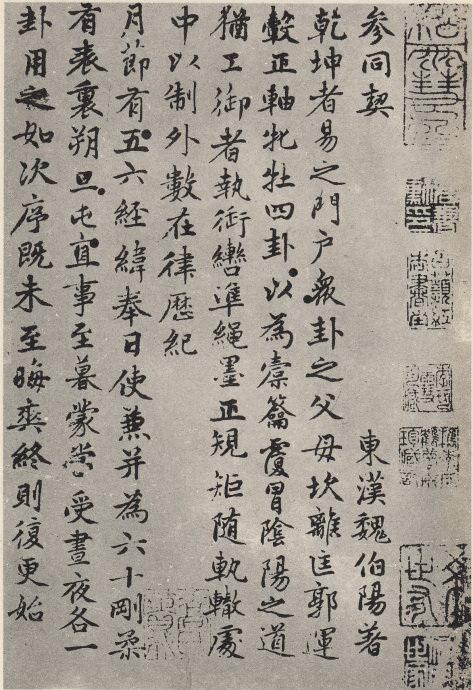 参同契 東漢魏伯陽著
乾坤者易之門户衆卦之父母坎離匡郭運
轂正軸牝牡四卦以為橐籥覆冒陰陽之道
猶工御者執銜轡準繩墨正規矩随軌轍處
中以制外數在律歷紀
月節有五六経緯奉日使兼并為六十剛柔
有表裏朔旦屯直事至暮蒙當受晝夜各一
卦用之如次序既未至晦爽終則復更始